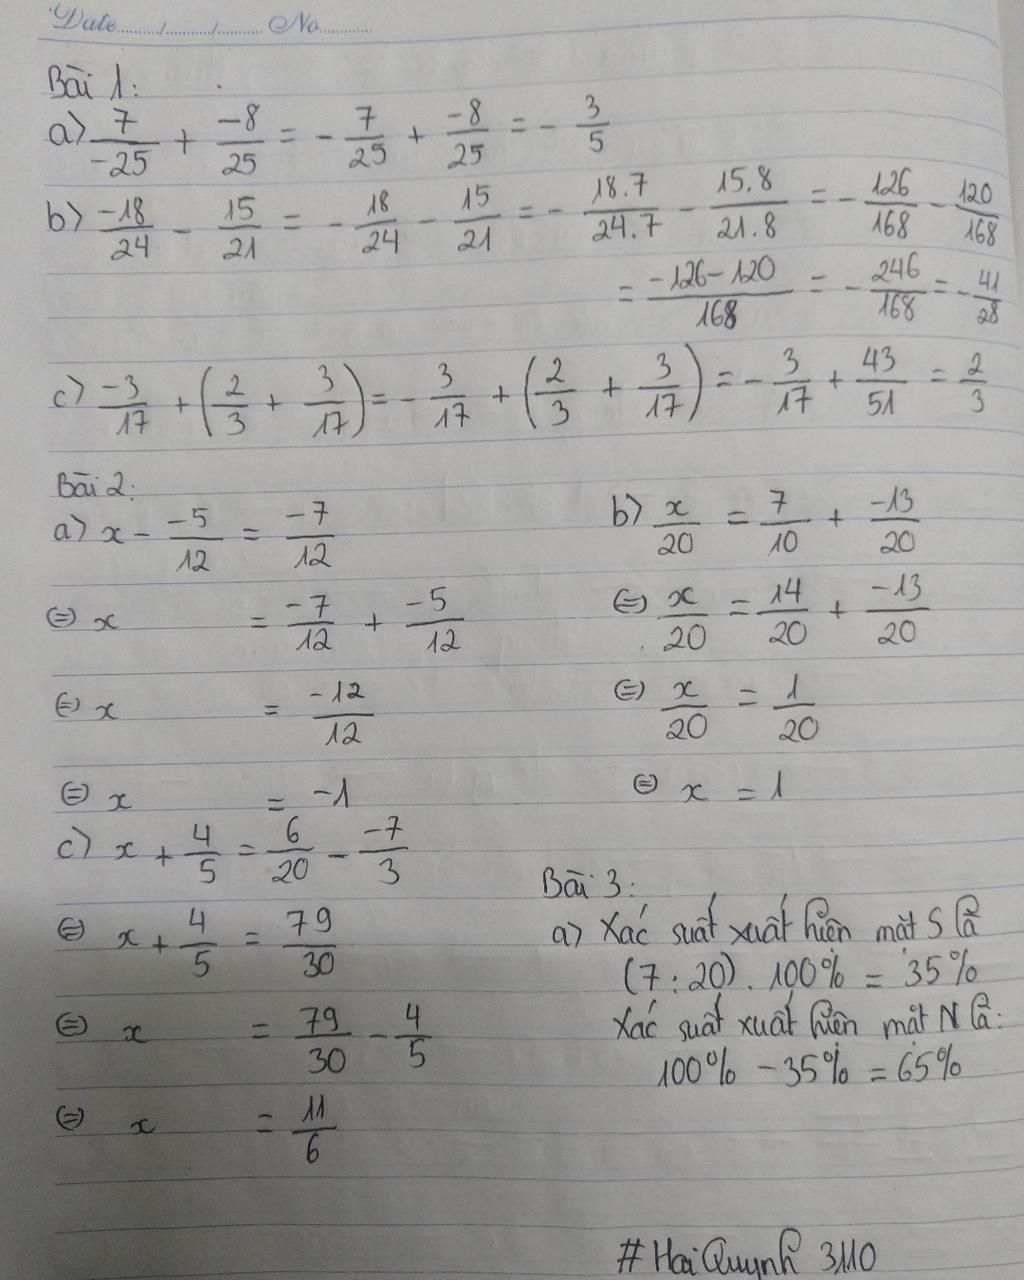 Date......../......../........ No............
Bài 1:
a) 7/-25 + -8/25 = - 7/25 + -8/25 = - 3/5
b) -18/24 - 15/21 = - 18/24 - 15/21 = - 18.7/24.7 - 15.8/21.8 = - 126/168 - 120/168
= -126-120/168 = - 246/168 = - 41/28
c) -3/17 + (2/3 + 3/17) = - 3/17 + (2/3 + 3/17) = - 3/17 + 43/51 = 2/3
Bài 2:
a) x - -5/12 = -7/12
⇔ x = -7/12 + -5/12
⇔ x = -12/12
⇔ x = -1
b) x/20 = 7/10 + -13/20
⇔ x/20 = 14/20 + -13/20
⇔ x/20 = 1/20
⇔ x = 1
c) x + 4/5 = 6/20 - -7/3
⇔ x + 4/5 = 79/30
⇔ x = 79/30 - 4/5
⇔ x = 11/6
Bài 3:
a) Xác suất xuất hiện mặt S là
(7 : 20) . 100% = 35%
Xác suất xuất hiện mặt N là:
100% - 35% = 65%
# HaiQuynh 3110